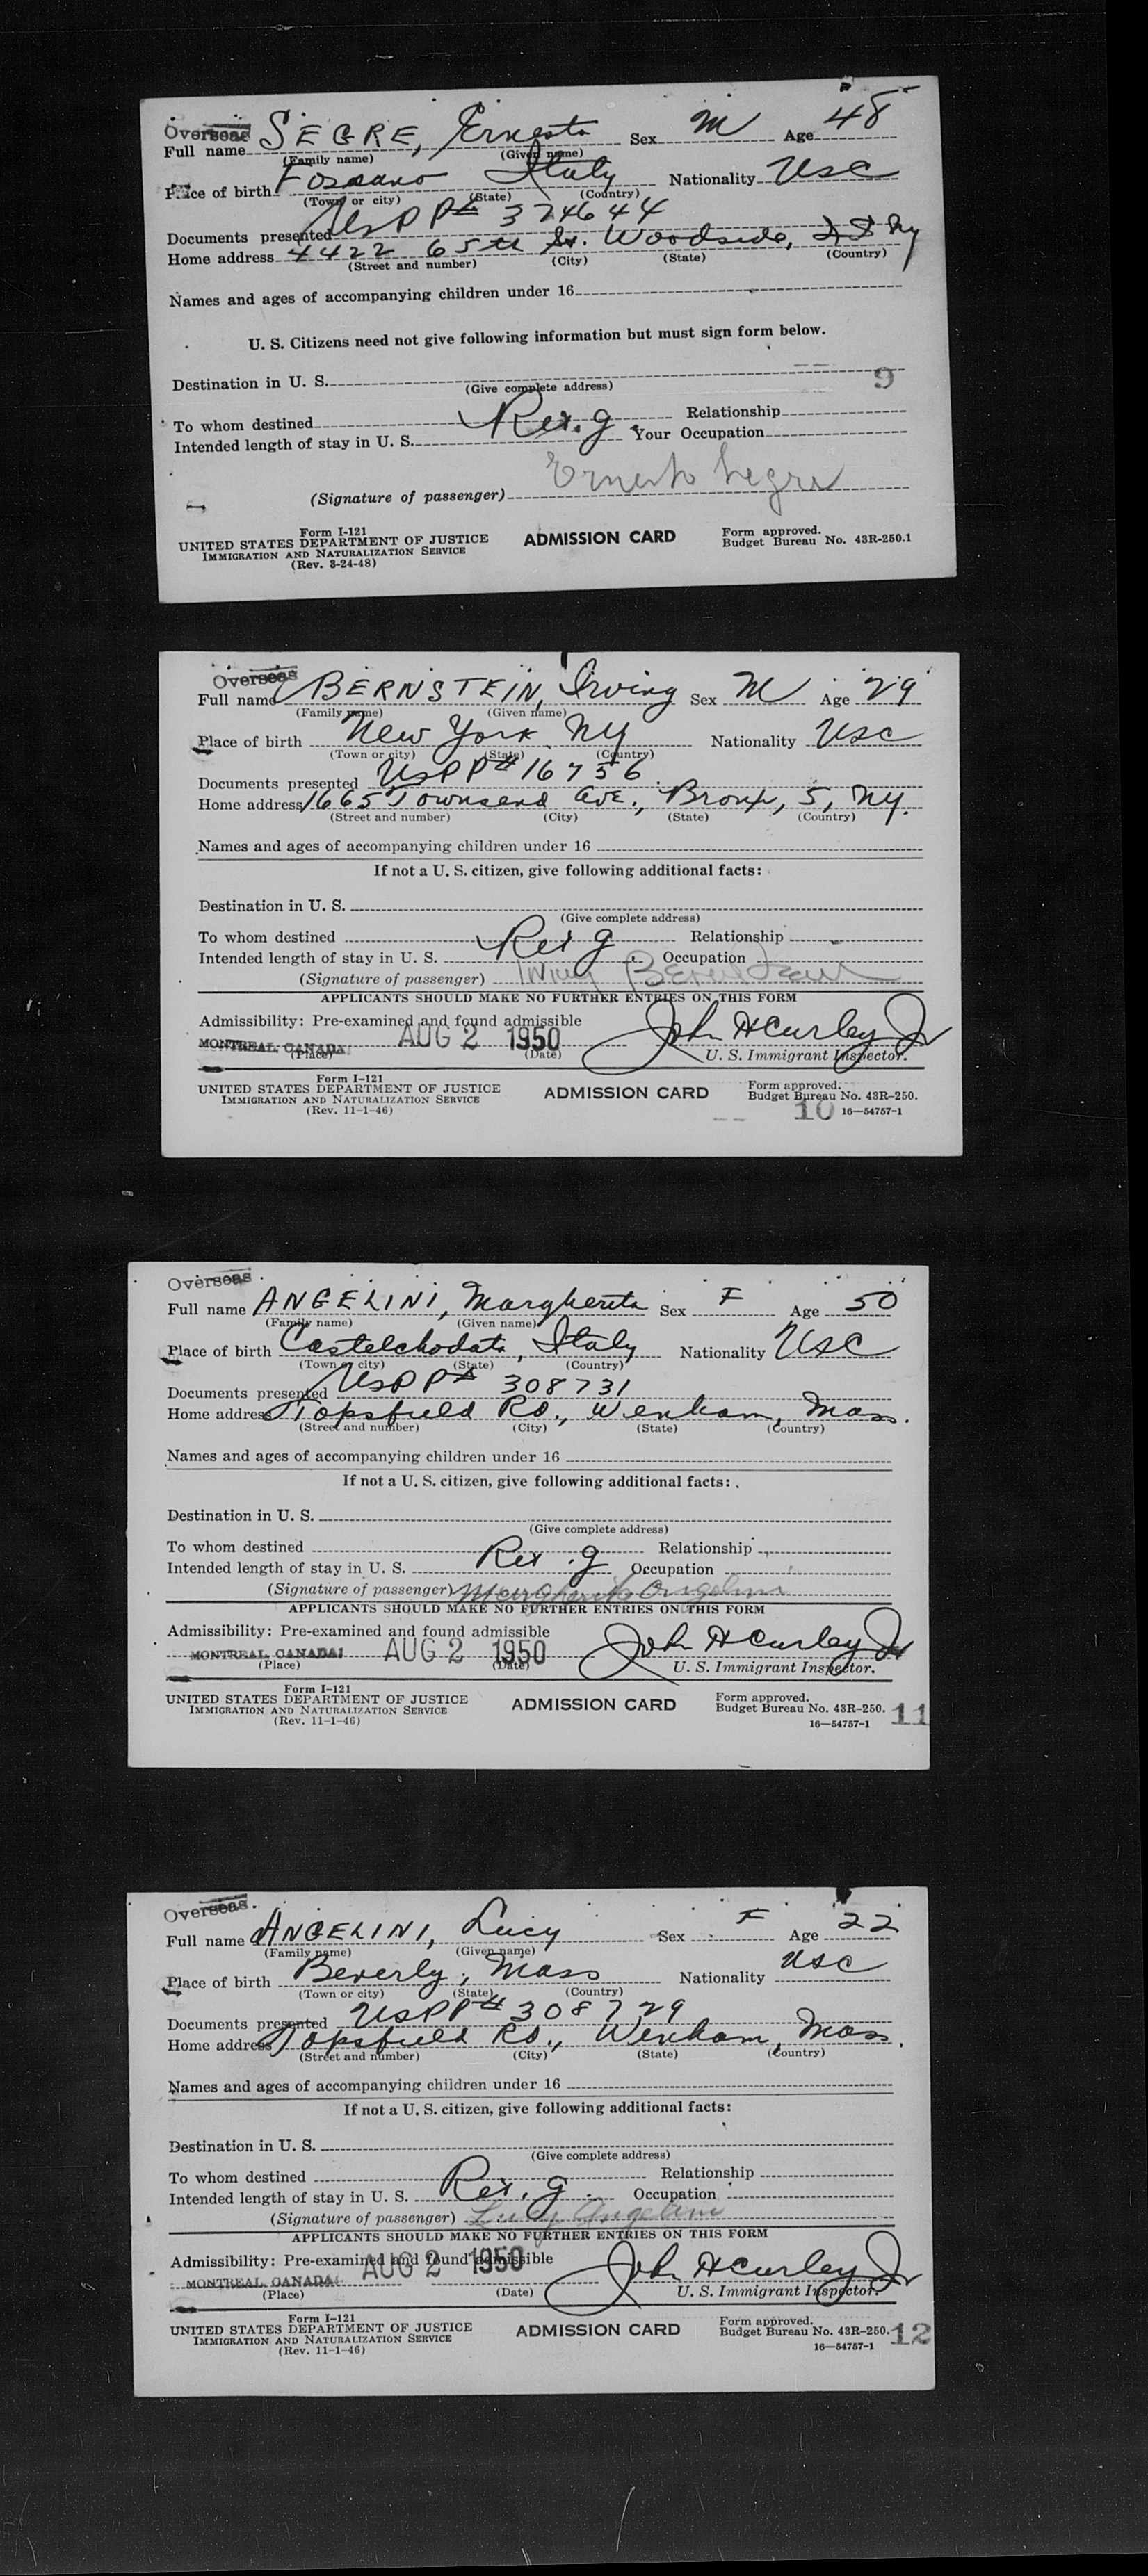 Overseas
Full name SEGRE, Ernesto Sex M Age 48
(Family name) (Given name)
Place of birth Fossano Italy Nationality USC
(Town or city) (State) (Country)
Documents presented USPP# 374644
Home address 4422 65th St. Woodside, NY
(Street and number) (City) (State) (Country)
Names and ages of accompanying children under 16
U. S. Citizens need not give following information but must sign form below.
Destination in U. S.
(Give complete address) 9
To whom destined Relationship
Intended length of stay in U. S. Rex. g Your Occupation
(Signature of passenger) Ernesto Segre
Form I-121
UNITED STATES DEPARTMENT OF JUSTICE
IMMIGRATION AND NATURALIZATION SERVICE
(Rev. 3-24-48)
ADMISSION CARD
Form approved.
Budget Bureau No. 43R-250.1
Overseas
Full name BERNSTEIN, Irving Sex M Age 29
(Family name) (Given name)
Place of birth New York NY Nationality USC
(Town or city) (State) (Country)
Documents presented USPP# 16756
Home address 1665 Townsend Ave., Bronx, 5, NY.
(Street and number) (City) (State) (Country)
Names and ages of accompanying children under 16
If not a U. S. citizen, give following additional facts:
Destination in U. S.
(Give complete address)
To whom destined Relationship
Intended length of stay in U. S. Rex g. Occupation
(Signature of passenger) Irving Bernstein
APPLICANTS SHOULD MAKE NO FURTHER ENTRIES ON THIS FORM
Admissibility: Pre-examined and found admissible
MONTREAL CANADA AUG 2 1950 John H Curley Jr
(Place) (Date) U. S. Immigrant Inspector.
Form I-121
UNITED STATES DEPARTMENT OF JUSTICE
IMMIGRATION AND NATURALIZATION SERVICE
(Rev. 11-1-46)
ADMISSION CARD
Form approved.
Budget Bureau No. 43R-250.
10 16—54757-1
Overseas
Full name ANGELINI, Margherita Sex F Age 50
(Family name) (Given name)
Place of birth Castelchodato, Italy Nationality USC
(Town or city) (State) (Country)
Documents presented USPP# 308731
Home address Topsfield Rd., Wenham, Mass.
(Street and number) (City) (State) (Country)
Names and ages of accompanying children under 16
If not a U. S. citizen, give following additional facts:
Destination in U. S.
(Give complete address)
To whom destined Relationship
Intended length of stay in U. S. Rex. g Occupation
(Signature of passenger) Margherita Angelini
APPLICANTS SHOULD MAKE NO FURTHER ENTRIES ON THIS FORM
Admissibility: Pre-examined and found admissible
MONTREAL CANADA AUG 2 1950 John H Curley Jr
(Place) (Date) U. S. Immigrant Inspector.
Form I-121
UNITED STATES DEPARTMENT OF JUSTICE
IMMIGRATION AND NATURALIZATION SERVICE
(Rev. 11-1-46)
ADMISSION CARD
Form approved.
Budget Bureau No. 43R-250. 11
16—54757-1
Overseas
Full name ANGELINI, Lucy Sex F Age 22
(Family name) (Given name)
Place of birth Beverly, Mass Nationality USC
(Town or city) (State) (Country)
Documents presented USPP# 308729
Home address Topsfield Rd., Wenham, Mass.
(Street and number) (City) (State) (Country)
Names and ages of accompanying children under 16
If not a U. S. citizen, give following additional facts:
Destination in U. S.
(Give complete address)
To whom destined Relationship
Intended length of stay in U. S. Rex. g. Occupation
(Signature of passenger) Lucy Angelini
APPLICANTS SHOULD MAKE NO FURTHER ENTRIES ON THIS FORM
Admissibility: Pre-examined and found admissible
MONTREAL CANADA AUG 2 1950 John H Curley Jr
(Place) (Date) U. S. Immigrant Inspector.
Form I-121
UNITED STATES DEPARTMENT OF JUSTICE
IMMIGRATION AND NATURALIZATION SERVICE
(Rev. 11-1-46)
ADMISSION CARD
Form approved.
Budget Bureau No. 43R-250. 12
16—54757-1